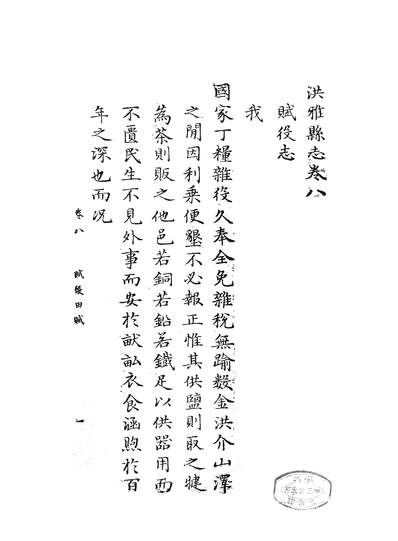 洪雅縣志卷八
賦役志
我
國家丁糧雜役久奉全免雜稅無踰數金洪介山澤
之閒因利乗便墾不必報正惟其供鹽則取之犍
為茶則販之他邑若銅若鉛若鐵足以供器用而
不匱民生不見外事而安於畎畝衣食涵煦於百
年之深也而况
卷八
賦役田賦
一